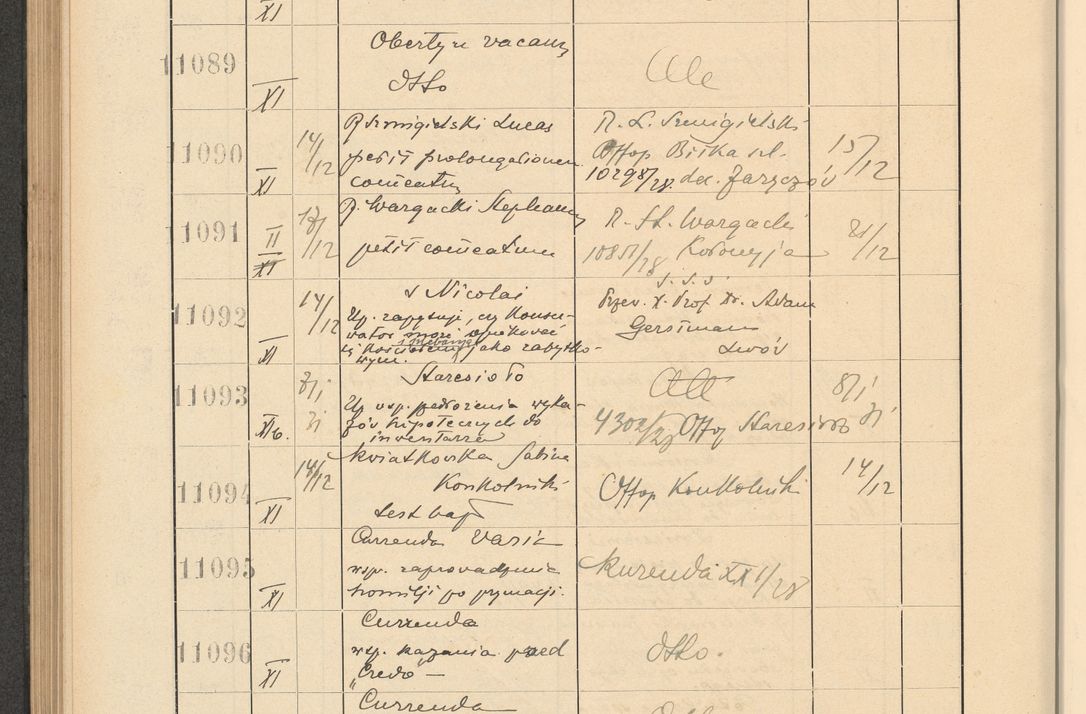 XI
11089
XI
Obertyn vacans
dtto
11090
XI
14/12
R. Smigielski Lucas
petit prolongationem
comeatus
R. Ł. Smigielski
Offop Biłka szl.
10298/28. dec. Zarzczów
15/12
11091
II
XI
/12
R. Wargacki Stephanus
petit comeatum
R. St. Wargacki
10851/28 Kołomyja
21/12
11092
XI
14/12
s Nicolai
Up. zapytuje, czy Konser-
wator może opiekować
się Kościołem jako zabytko-
wym.
s. s. s.
Przew. X. Prof. Dr. Adam
Gerstmann
Lwów
11093
XI b.
8/I
31
Staresioło
Up. wsp. przedłożenia wyka-
zów hipotecznych do
inventarza
4302/27 Offop Staresioło
8/I
31
11094
XI
14/12
Kwiatkowska Sabina
Konkolniki
test bapt
Offop Konkolniki
14/12
11095
XI
Currenda varia
wsp. zaprowadzenia
homilji po prymacji.
Kurenda XXI/28
11096
XI
Currenda
wsp. kazania przed
"Credo" —
dtto.
Currenda